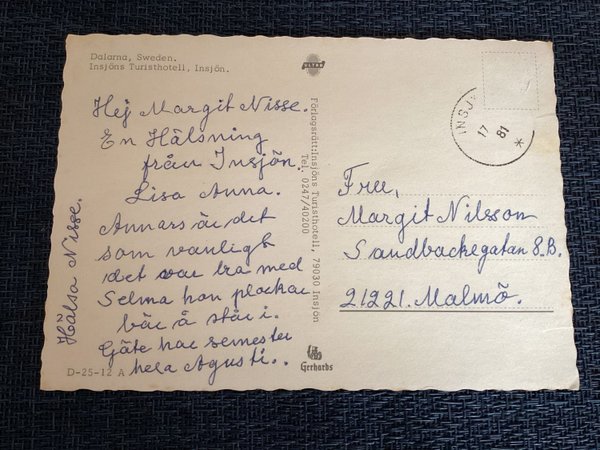 Dalarna, Sweden.
Insjöns Turisthotell, Insjön.
ULTRA
Hej Margit Nisse.
En Hälsning
från Insjön.
Lisa Anna.
Annars är det
som vanligt
det var bra med
Selma hon plockar
bär å står i.
Göte har semester
hela Agusti..
Hälsa Nisse.
D-25-12 A
Förlagsrätt: Insjöns Turisthotell, 79030 Insjön
Tel. 0247/40200
Gerhards
INSJ
17
81
*
Fru,
Margit Nilsson
Sandbackegatan 8.B.
21221. Malmö.